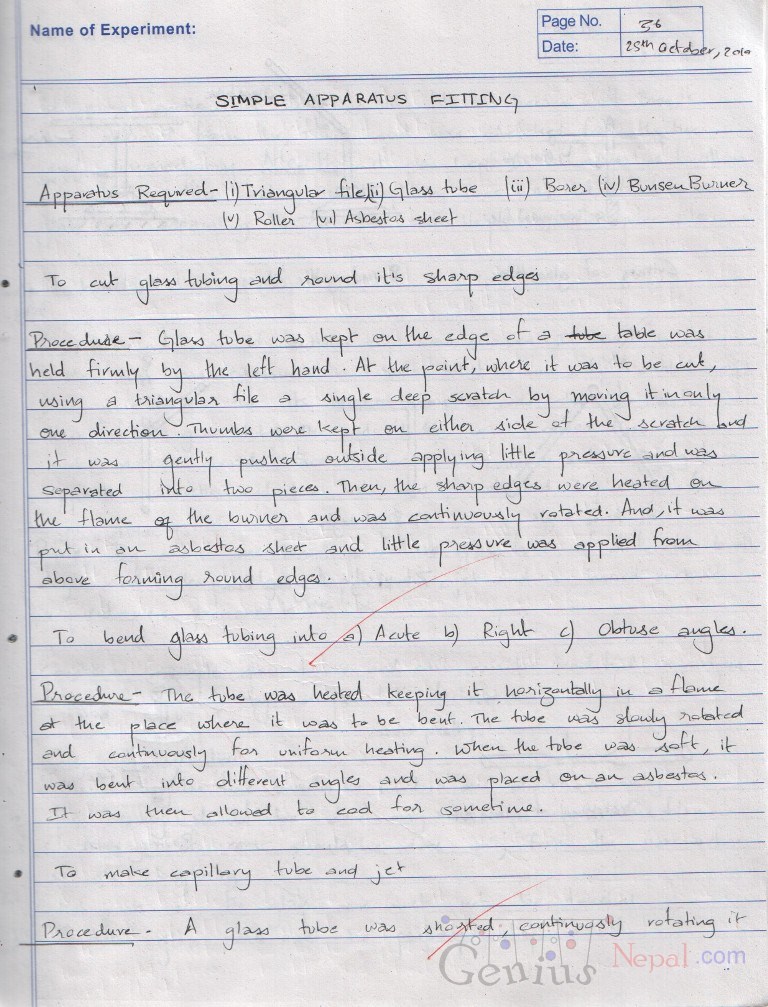 Name of Experiment:
Page No. 36
Date: 25th October, 2010
SIMPLE APPARATUS FITTING
Apparatus Required- (i) Triangular file (ii) Glass tube (iii) Borer (iv) Bunsen Burner
(v) Roller (vi) Asbestos sheet
To cut glass tubing and round it's sharp edges
Procedure - Glass tube was kept on the edge of a tube table was
held firmly by the left hand. At the point, where it was to be cut,
using a triangular file a single deep scratch by moving it in only
one direction. Thumbs were kept on either side of the scratch and
it was gently pushed outside applying little pressure and was
separated into two pieces. Then, the sharp edges were heated on
the flame of the burner and was continuously rotated. And, it was
put in an asbestos sheet and little pressure was applied from
above forming round edges.
To bend glass tubing into a) Acute b) Right c) Obtuse angles.
Procedure - The tube was heated keeping it horizontally in a flame
at the place where it was to be bent. The tube was slowly rotated
and continuously for uniform heating. When the tube was soft, it
was bent into different angles and was placed on an asbestos.
It was then allowed to cool for sometime.
To make capillary tube and jet
Procedure - A glass tube was continuosly rotating it
Genius Nepal.com